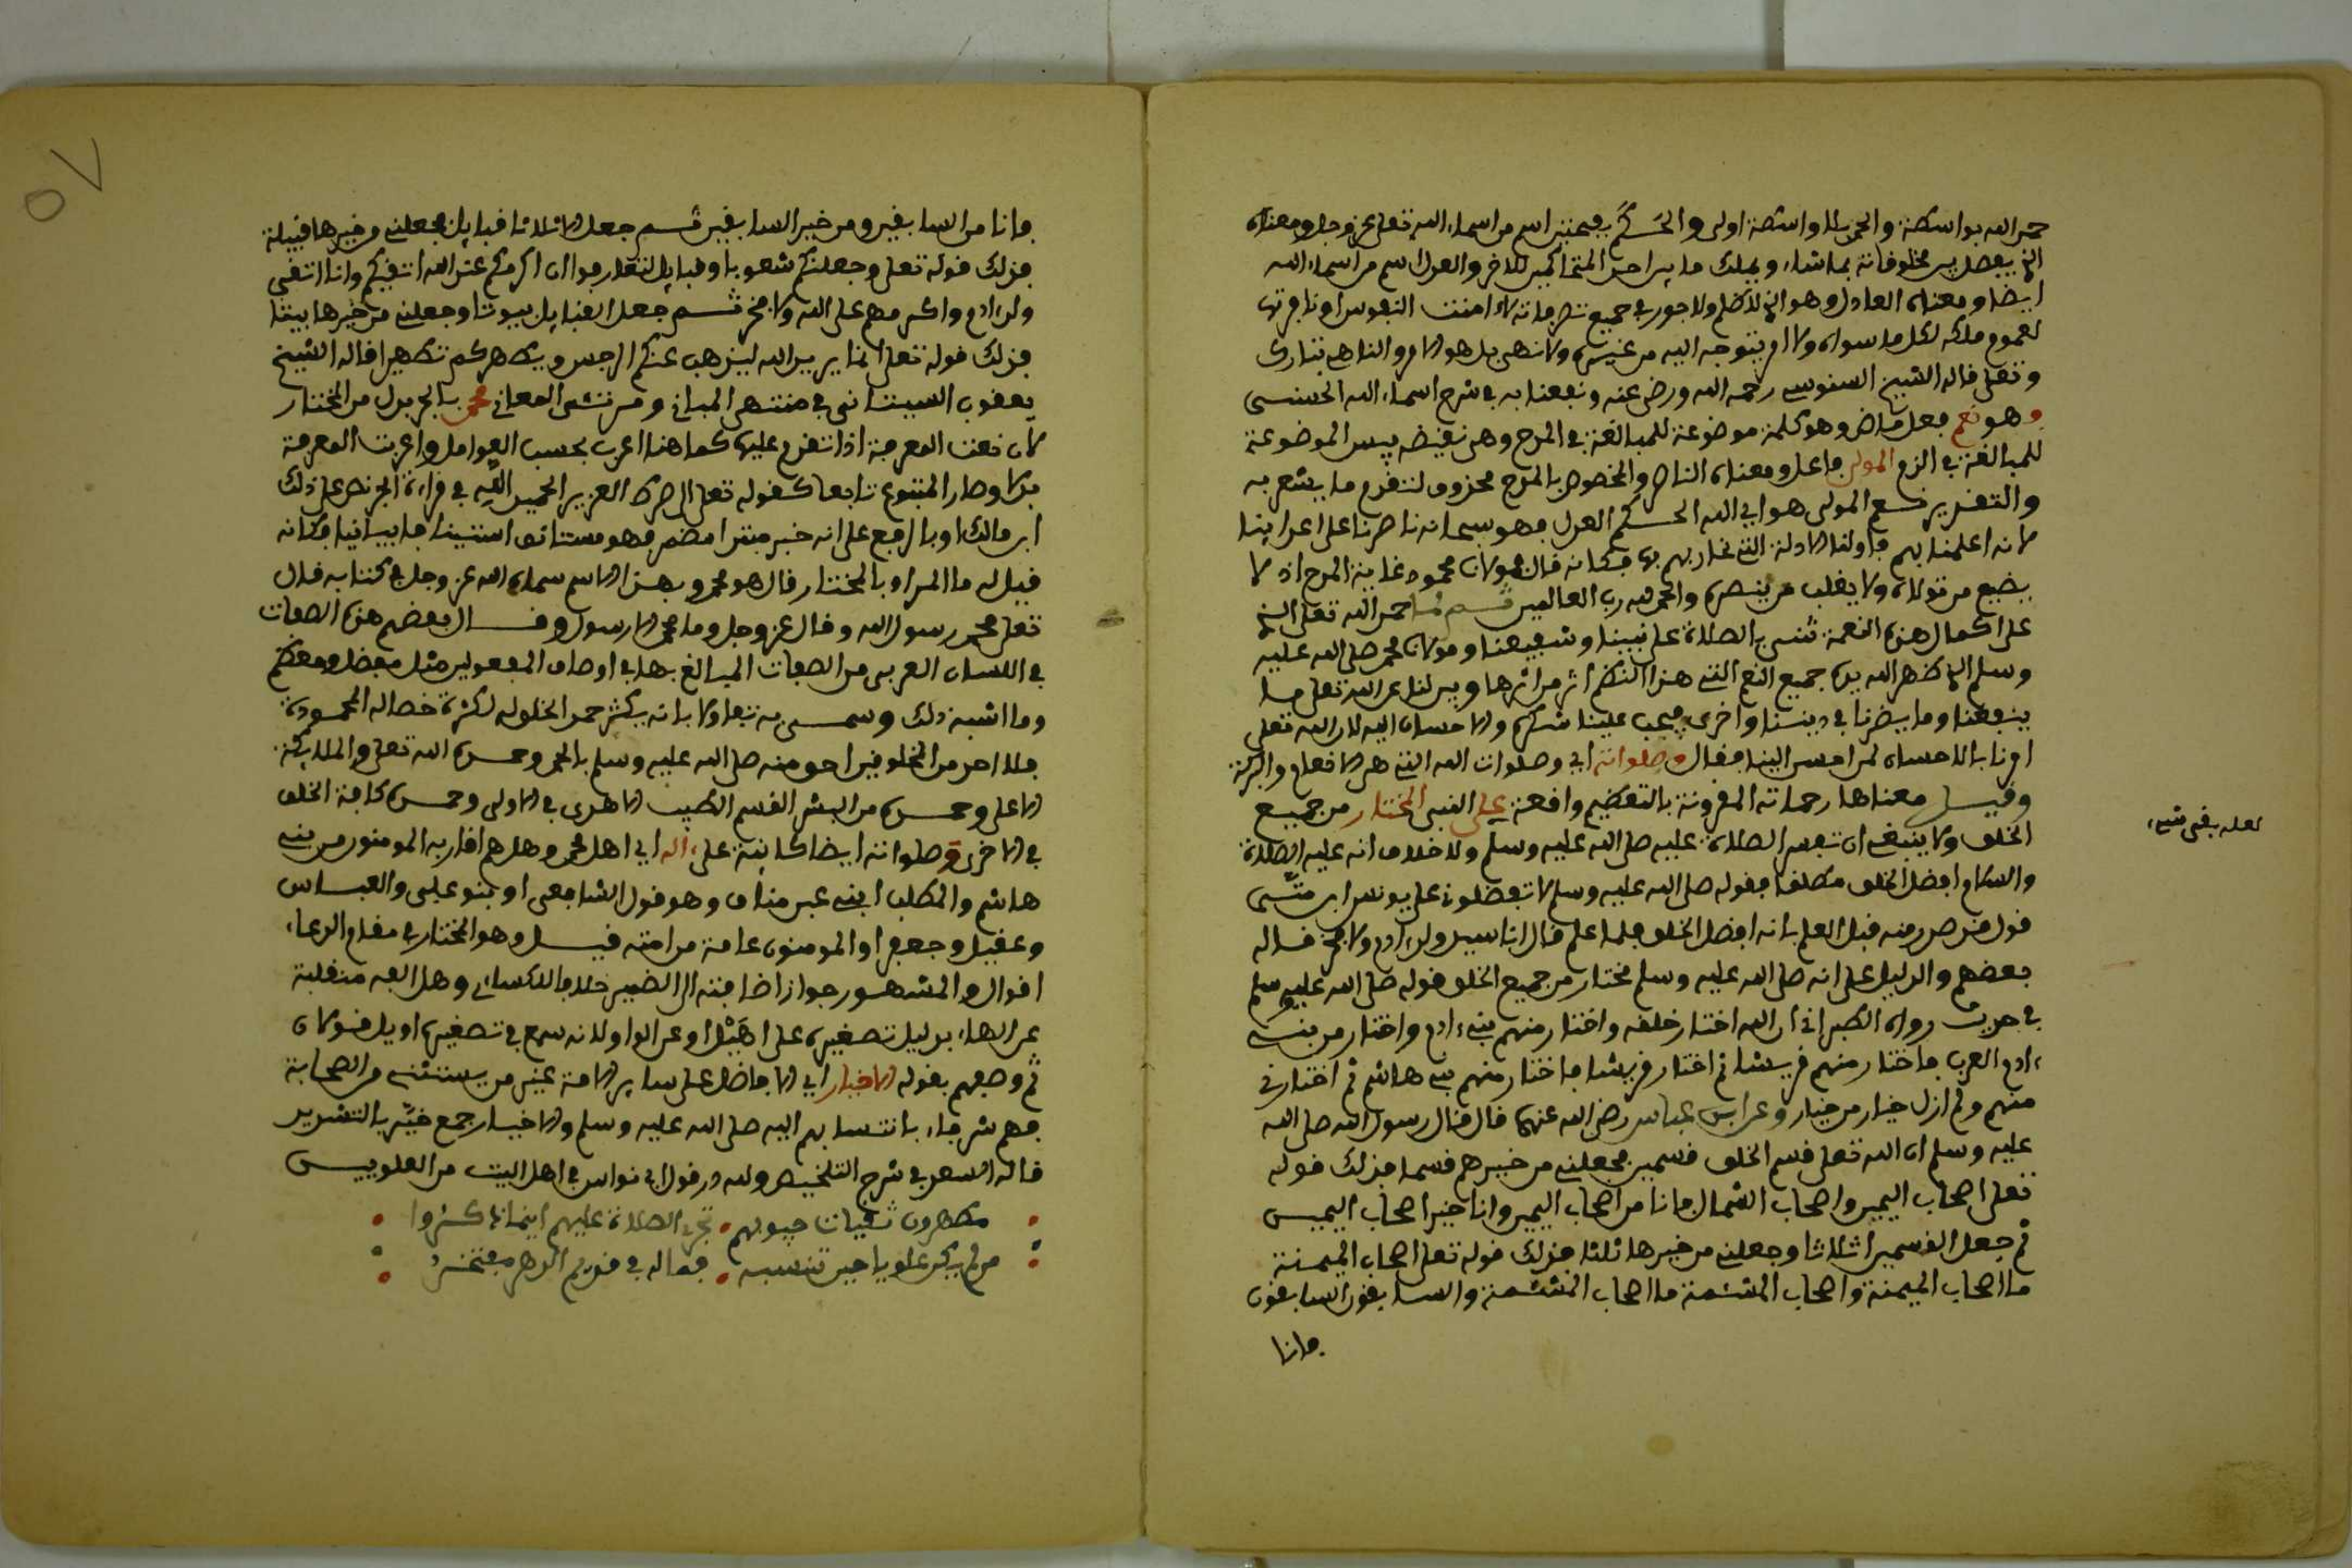 حمد الله بواسطة والحمد بلا واسطة اولى والحَكَم بفتحتين اسم من اسماء الله تعلى عز وجل ومعناه
الذي يفصل بين مخلوفاته بما شاء ويملك ما بين احد المتحاكمين للاخر والعدل اسم من اسماء الله
ايضا ومعناه العادل وهو الذي لا ظلم ولا جور في جميع تصرفاته لاوامنت النفوس او نافرتها
لعموم ملكه لكل ما سواه ولا امر يتوجه اليه من غيره ولا نهي بل هو الامر والناهي تبارك
وتعلى قاله الشيخ السنوسي رحمه الله ورضي عنه ونفعنا به في شرح اسماء الله الحسنى
وهو نعم فعل ماض وهو كلمة موضوعة للمبالغة في المدح وهي نقيضه بيس الموضوعة
للمبالغة في الذم المولى فاعل ومعناه الناصر والمخصوص بالمدح محذوف لتقدم ما يشعر به
والتقدير نعم المولى هو اي الله الحكم العدل فهو سبحانه ناصرنا على اعداينا
لانه اعلمنا بهم فاولنا الادلة التي نحاربهم بها فكانه قال مولانا محمود غاية المدح اذ لا
يضيع من تولاه ولا يغلب من ينصره والحمد لله رب العالمين ثم لما حمد الله تعلى الذي
على اكمال هذه النعمة ثنى بالصلاة على نبينا وشفيعنا ومولانا محمد صلى الله عليه
وسلم الذي ظهر الله بيده جميع النعم التي هذا النظم اثر من اثرها وبين لنا عن الله تعلى ما
ينفعنا وما يضرنا في ديننا واخرى فيجب علينا شكره والاحسان اليه لان الله تعلى
امرنا بالاحسان لمن احسن الينا فقال وصلواته اي وصلوات الله التي هي الانعام والبركة
وقيل معناها رحماته المقرونة بالتعظيم واقعة على النبي المختار من جميع
الخلق ولا ينبغي ان تفسر الصلاة عليه صلى الله عليه وسلم ولا خلاف انه عليه الصلاة
والسلام افضل الخلق مطلقا فقوله صلى الله عليه وسلم لا تفضلوني على يونس ابن متّى
قول قد صدر منه قبل العلم بانه افضل الخلق فلما علم قال انا سيد ولد ءادم ولا فخر قاله
بعضهم والدليل على انه صلى الله عليه وسلم مختار من جميع الخلق قوله صلى الله عليه وسلم
في حديث رواه الطبراني ان الله اختار خلقه واختار منهم بني ءادم واختار من بني
ءادم العرب فاختار منهم قريشا ثم اختار قريشا فاختار منهم بني هاشم ثم اختارني
منهم ولم ازل خيار من خيار وعن ابن عباس رضي الله عنهما قال قال رسول الله صلى الله
عليه وسلم ان الله تعلى قسم الخلق قسمين فجعلني من خيرهم قسما فذلك قوله
تعلى اصحاب اليمين واصحاب الشمال فانا من اصحاب اليمين وانا خير اصحاب اليمين
ثم جعل القسمين اثلاثا وجعلني من خيرها ثلثا فذلك قوله تعلى اصحاب الميمنة
ما اصحاب الميمنة واصحاب المشئمة ما اصحاب المشئمة والسابقون السابقون
فانا
لعله بقي شيء
فانا من السابقين ومن خير السابقين ثم جعل الاثلاثا قبايل فجعلني من خيرها قبيلة
فذلك قوله تعلى وجعلنكم شعوبا وقبايل لتعارفوا ان اكرمكم عند الله اتقيكم وانا اتقى
ولد ءادم واكرمهم على الله ولا فخر ثم جعل القبايل بيوتا وجعلني من خيرها بيتا
فذلك قوله تعلى انما يريد الله ليذهب عنكم الرجس ويطهركم تطهيرا قاله الشيخ
يعقوب السيتاني في منتهى المباني ومرتقى المعاني محمد بالجر بدل من المختار
لان نعت المعرفة اذا تقدم عليها كما هنا اعرب بحسب العوامل واعربت المعرفة
بدلا وصار المتبوع تابعا كقوله تعلى الى صراط العزيز الحميد الله في قراءة الجر نص على ذلك
ابن مالك او بالرفع على انه خبر مبتدا مضمر فهو مستانف استينافا بيانيا فكانه
قيل له ما المراد بالمختار قال هو محمد وبهذا الاسم سماه الله عز وجل في كتابه قال
تعلى محمد رسول الله وقال عز وجل وما محمد الا رسول وقال بعضهم هذه الصفات
في اللسان العربي من الصفات المبالغ بها في اوصاف المفعولين مثل مفضل ومعظم
وما اشبه ذلك وسمي به تفاولا بانه يكثر حمد الخلق له لكثرة خصاله المحمودة
فلا احد من المخلوقين احق منه صلى الله عليه وسلم بالحمد وحمده الله تعلى والملائكة
الاعلى وحمده من البشر القسم الطيب الاهدى في الاولى وحمده كافة الخلق
في الاخرى وصلواته ايضا كاينة على ءاله اي اهل محمد وهل هم اقاربه المومنون من بني
هاشم والمطلب ابني عبد مناف وهو قول الشافعي او بنو علي والعباس
وعقيل وجعفر او المومنون عامة من امته قيل وهو المختار في مقام الدعاء
اقوال والمشهور جواز اضافته الى الضمير خلافا للكساءي وهل الفه منقلبة
عن الهاء بدليل تصغيره على اهَيْل او عن الواو لانه سمع في تصغيره اويل قولان
ثم وصفهم بقوله الاخيار اي الافاضل على ساير الامة غير من يستثنى من الصحابة
فهم شرفاء بانتسابهم اليه صلى الله عليه وسلم والاخيار جمع خيّر بالتشديد
قاله السعد في شرح التلخيص ولله در قول ابي نواس في اهل البيت من العلويين
مطهرون نقيات جيوبهم • تجري الصلاة عليهم اينما ذكروا
من لم يكن علويا حين تنسبه • فما له في قديم الدهر مفتخرُ
٥٧